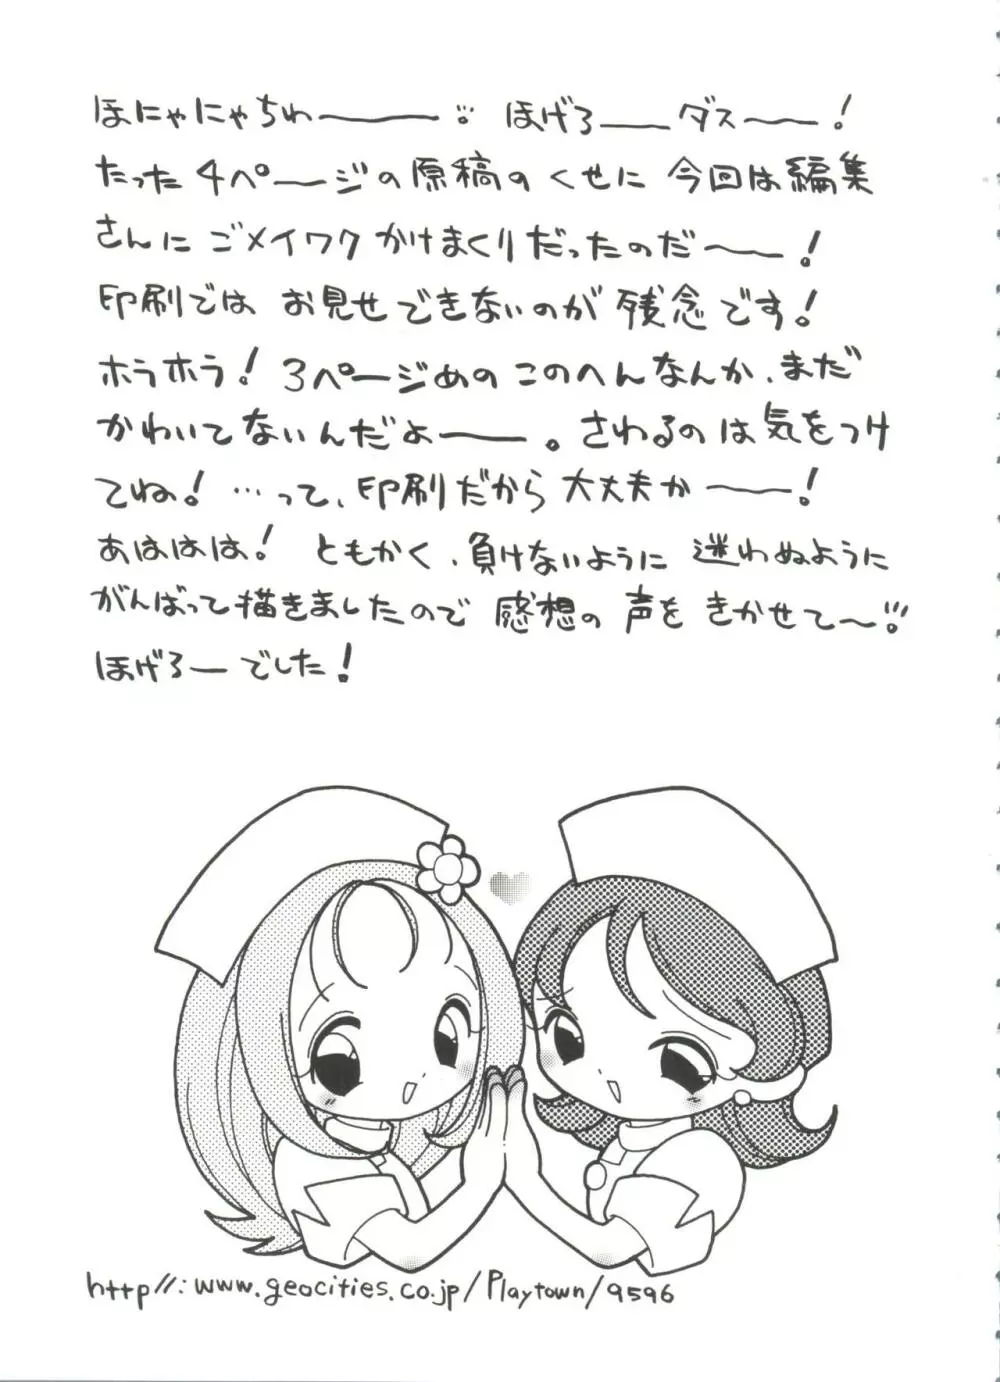 ほにゃにゃちわ――!! ほげろ――ダス――!
たった4ページの原稿のくせに 今回は編集
さんに ゴメイワク かけまくりだったのだ――!
印刷では お見せできないのが 残念です!
ホラホラ! 3ページめの このへんなんか、まだ
かわいてないんだよ――。さわるのは気をつけ
てね! …って、印刷だから 大丈夫か――!
あははは! ともかく、負けないように 迷わぬように
がんばって描きましたので 感想の 声を きかせて〜!!!
ほげろーでした!
http//:www.geocities.co.jp/Playtown/9596